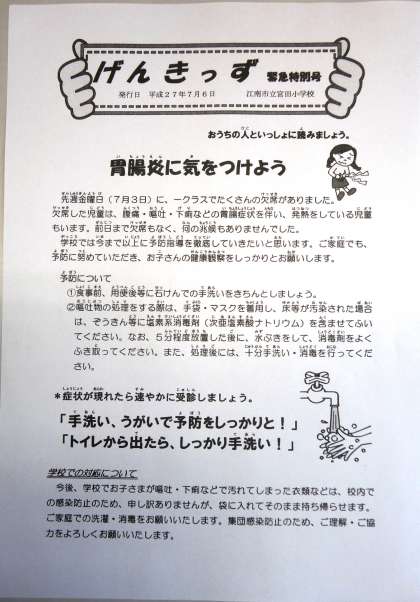 げんきっず 緊急特別号
発行日 平成27年7月6日 江南市立宮田小学校
おうちの人といっしょに読みましょう。
胃腸炎に気をつけよう
先週金曜日(7月3日)に、一クラスでたくさんの欠席がありました。
欠席した児童は、腹痛・嘔吐・下痢などの胃腸症状を伴い、発熱している児童
もいます。前日まで欠席もなく、何の兆候もありませんでした。
学校では今まで以上に予防指導を徹底していきたいと思います。ご家庭でも、
予防に努めていただき、お子さんの健康観察をしっかりとお願いします。
予防について
①食事前、用便後等に石けんでの手洗いをきちんとしましょう。
②嘔吐物の処理をする際は、手袋・マスクを着用し、床等が汚染された場合
は、ぞうきん等に塩素系消毒剤(次亜塩素酸ナトリウム)を含ませてふい
てください。なお、5分程度放置した後に、水ぶきをして、消毒剤をよく
ふき取ってください。また、処理後には、十分手洗い・消毒を行ってくだ
さい。
*症状が現れたら速やかに受診しましょう。
「手洗い、うがいで予防をしっかりと!」
「トイレから出たら、しっかり手洗い!」
学校での対応について
今後、学校でお子さまが嘔吐・下痢などで汚れてしまった衣類などは、校内で
の感染防止のため、申し訳ありませんが、袋に入れてそのまま持ち帰らせます。
ご家庭での洗濯・消毒をお願いいたします。集団感染防止のため、ご理解・ご協
力をよろしくお願いいたします。